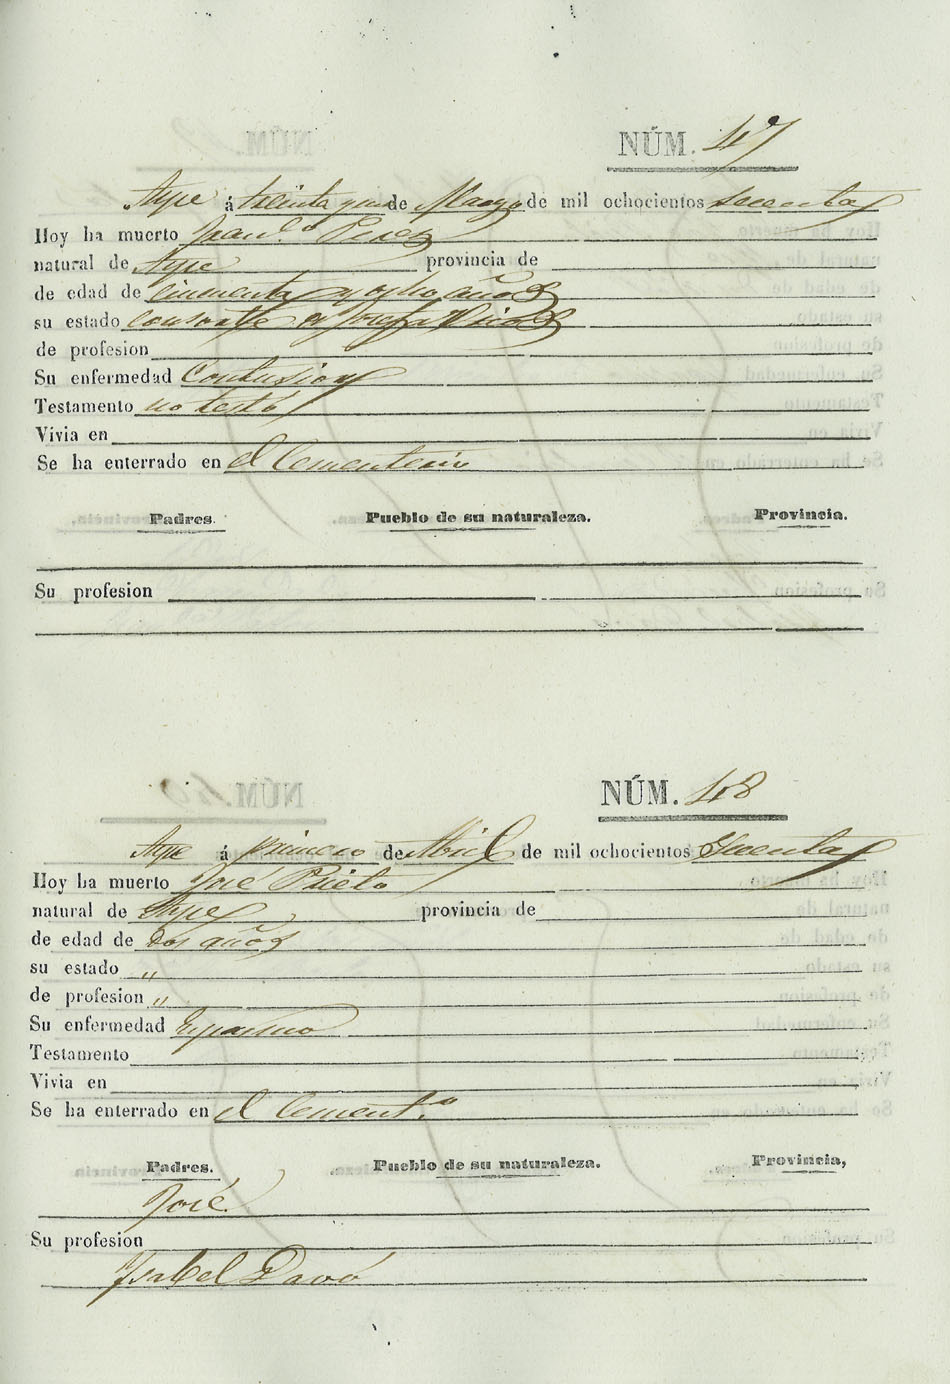 NÚM. 47
Aspe á treinta y uno de Marzo de mil ochocientos sesenta
Hoy ha muerto Fran.co Perez
natural de Aspe provincia de
de edad de cincuenta y ocho años
su estado consorte de Josefa
de profesion
Su enfermedad Contusion
Testamento no testó
Vívia en
Se ha enterrado en el Cementerio
Padres. Pueblo de su naturaleza. Provincia.
Su profesion
NÚM. 48
Aspe á primero de Abril de mil ochocientos Sesenta
Hoy ha muerto José Prieto
natural de Aspe provincia de
de edad de dos años
su estado "
de profesion "
Su enfermedad Espasmo
Testamento
Vivia en
Se ha enterrado en el Cement.o
Padres. Pueblo de su naturaleza. Provincia,
José
Su profesion
Ysabel Davó